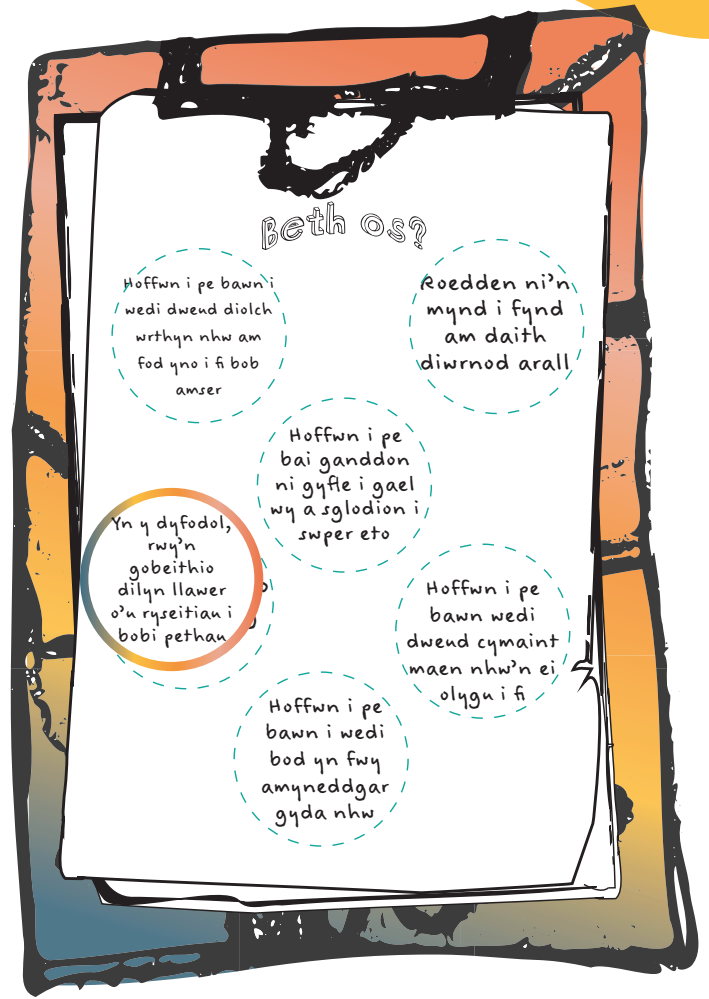 Beth os?
Hoffwn i pe bawn i
wedi dweud diolch
wrthyn nhw am
fod yno i fi bob
amser
Roedden ni'n
mynd i fynd
am daith
diwrnod arall
Hoffwn i pe
bai ganddon
ni gyfle i gael
wy a sglodion i
swper eto
Yn y dyfodol,
rwy'n
gobeithio
dilyn llawer
o'u ryseitiau i
bobi pethau
Hoffwn i pe
bawn wedi
dweud cymaint
maen nhw'n ei
olygu i fi
Hoffwn i pe
bawn i wedi
bod yn fwy
amyneddgar
gyda nhw